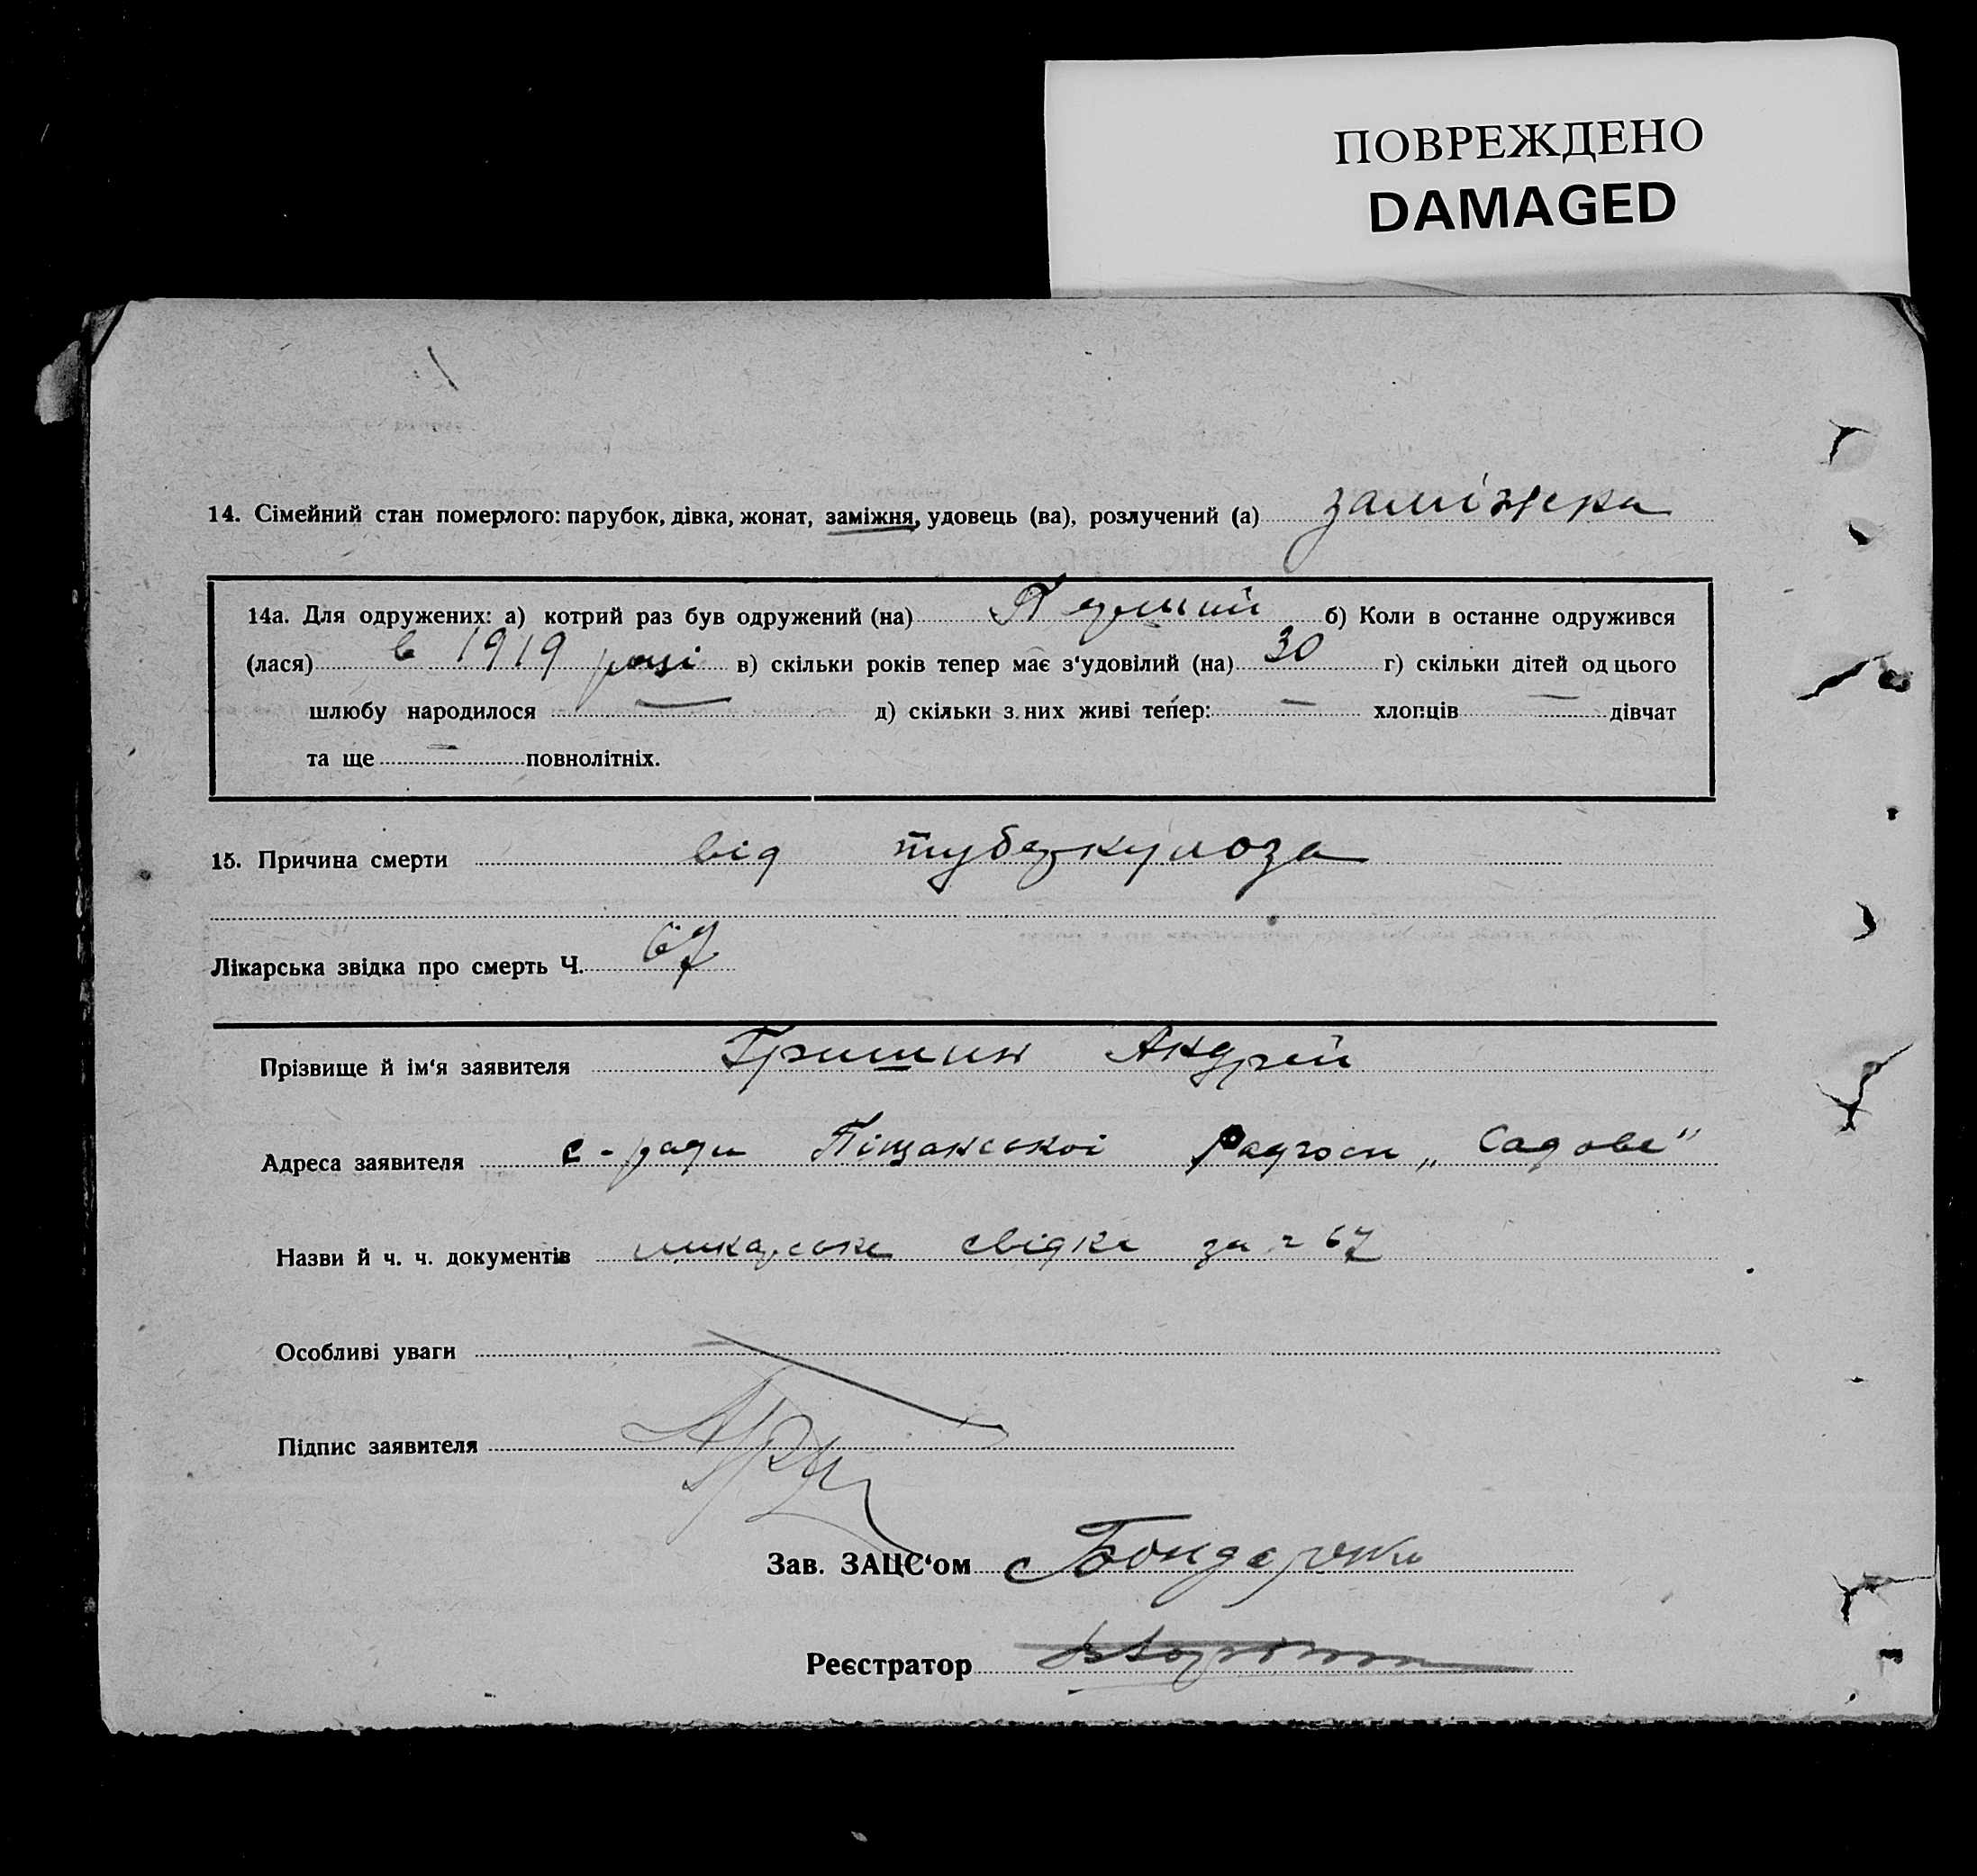 ПОВРЕЖДЕНО
DAMAGED
14. Сімейний стан померлого: парубок, дівка, жонат, заміжня, удовець (ва), розлучений (а) заміжня
14а. Для одружених: а) котрий раз був одружений (на) Перший б) Коли в останне одружився
(лася) в 1919 році в) скільки років тепер має з‘удовілий (на) 30 г) скільки дітей од цього
шлюбу народилося — д) скільки з них живі тепер: — хлопців — дівчат
та ще — повнолітніх.
15. Причина смерти від туберкулоза
Лікарська звідка про смерть Ч. 67
Прізвище й ім‘я заявителя Гришин Андрей
Адреса заявителя с-ради Піщанської Радгосп „Садове"
Назви й ч. ч. документів свідка за 67
Особливі уваги
Підпис заявителя
Зав. ЗАЦС‘ом Бондаренко
Реєстратор